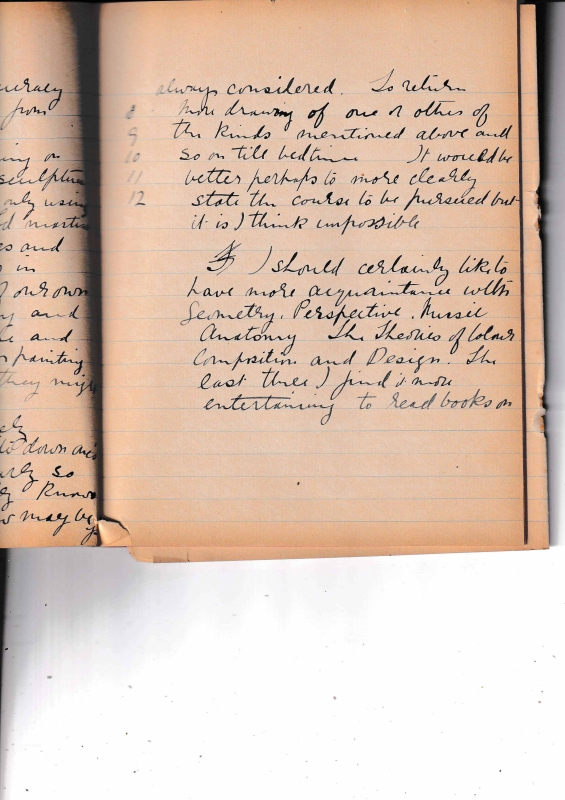 uracy
from
ing or
sculpture
only using
es and
s in
f our own
ng and
e and
r painting
they migh
ely
to down and
arly so
ly known
w may be
always considered. To return
8 more drawing of one or other of
9 the kinds mentioned above and
10 so on till bedtime It would be
11 better perhaps to more clearly
12 state the course to be pursued but
it is I think impossible
I should certainly like to
have more acquaintance with
Geometry. Perspective. Muscle
Anatomy The Theories of Colour
Composition and Design. The
last three I find it more
entertaining to read books on